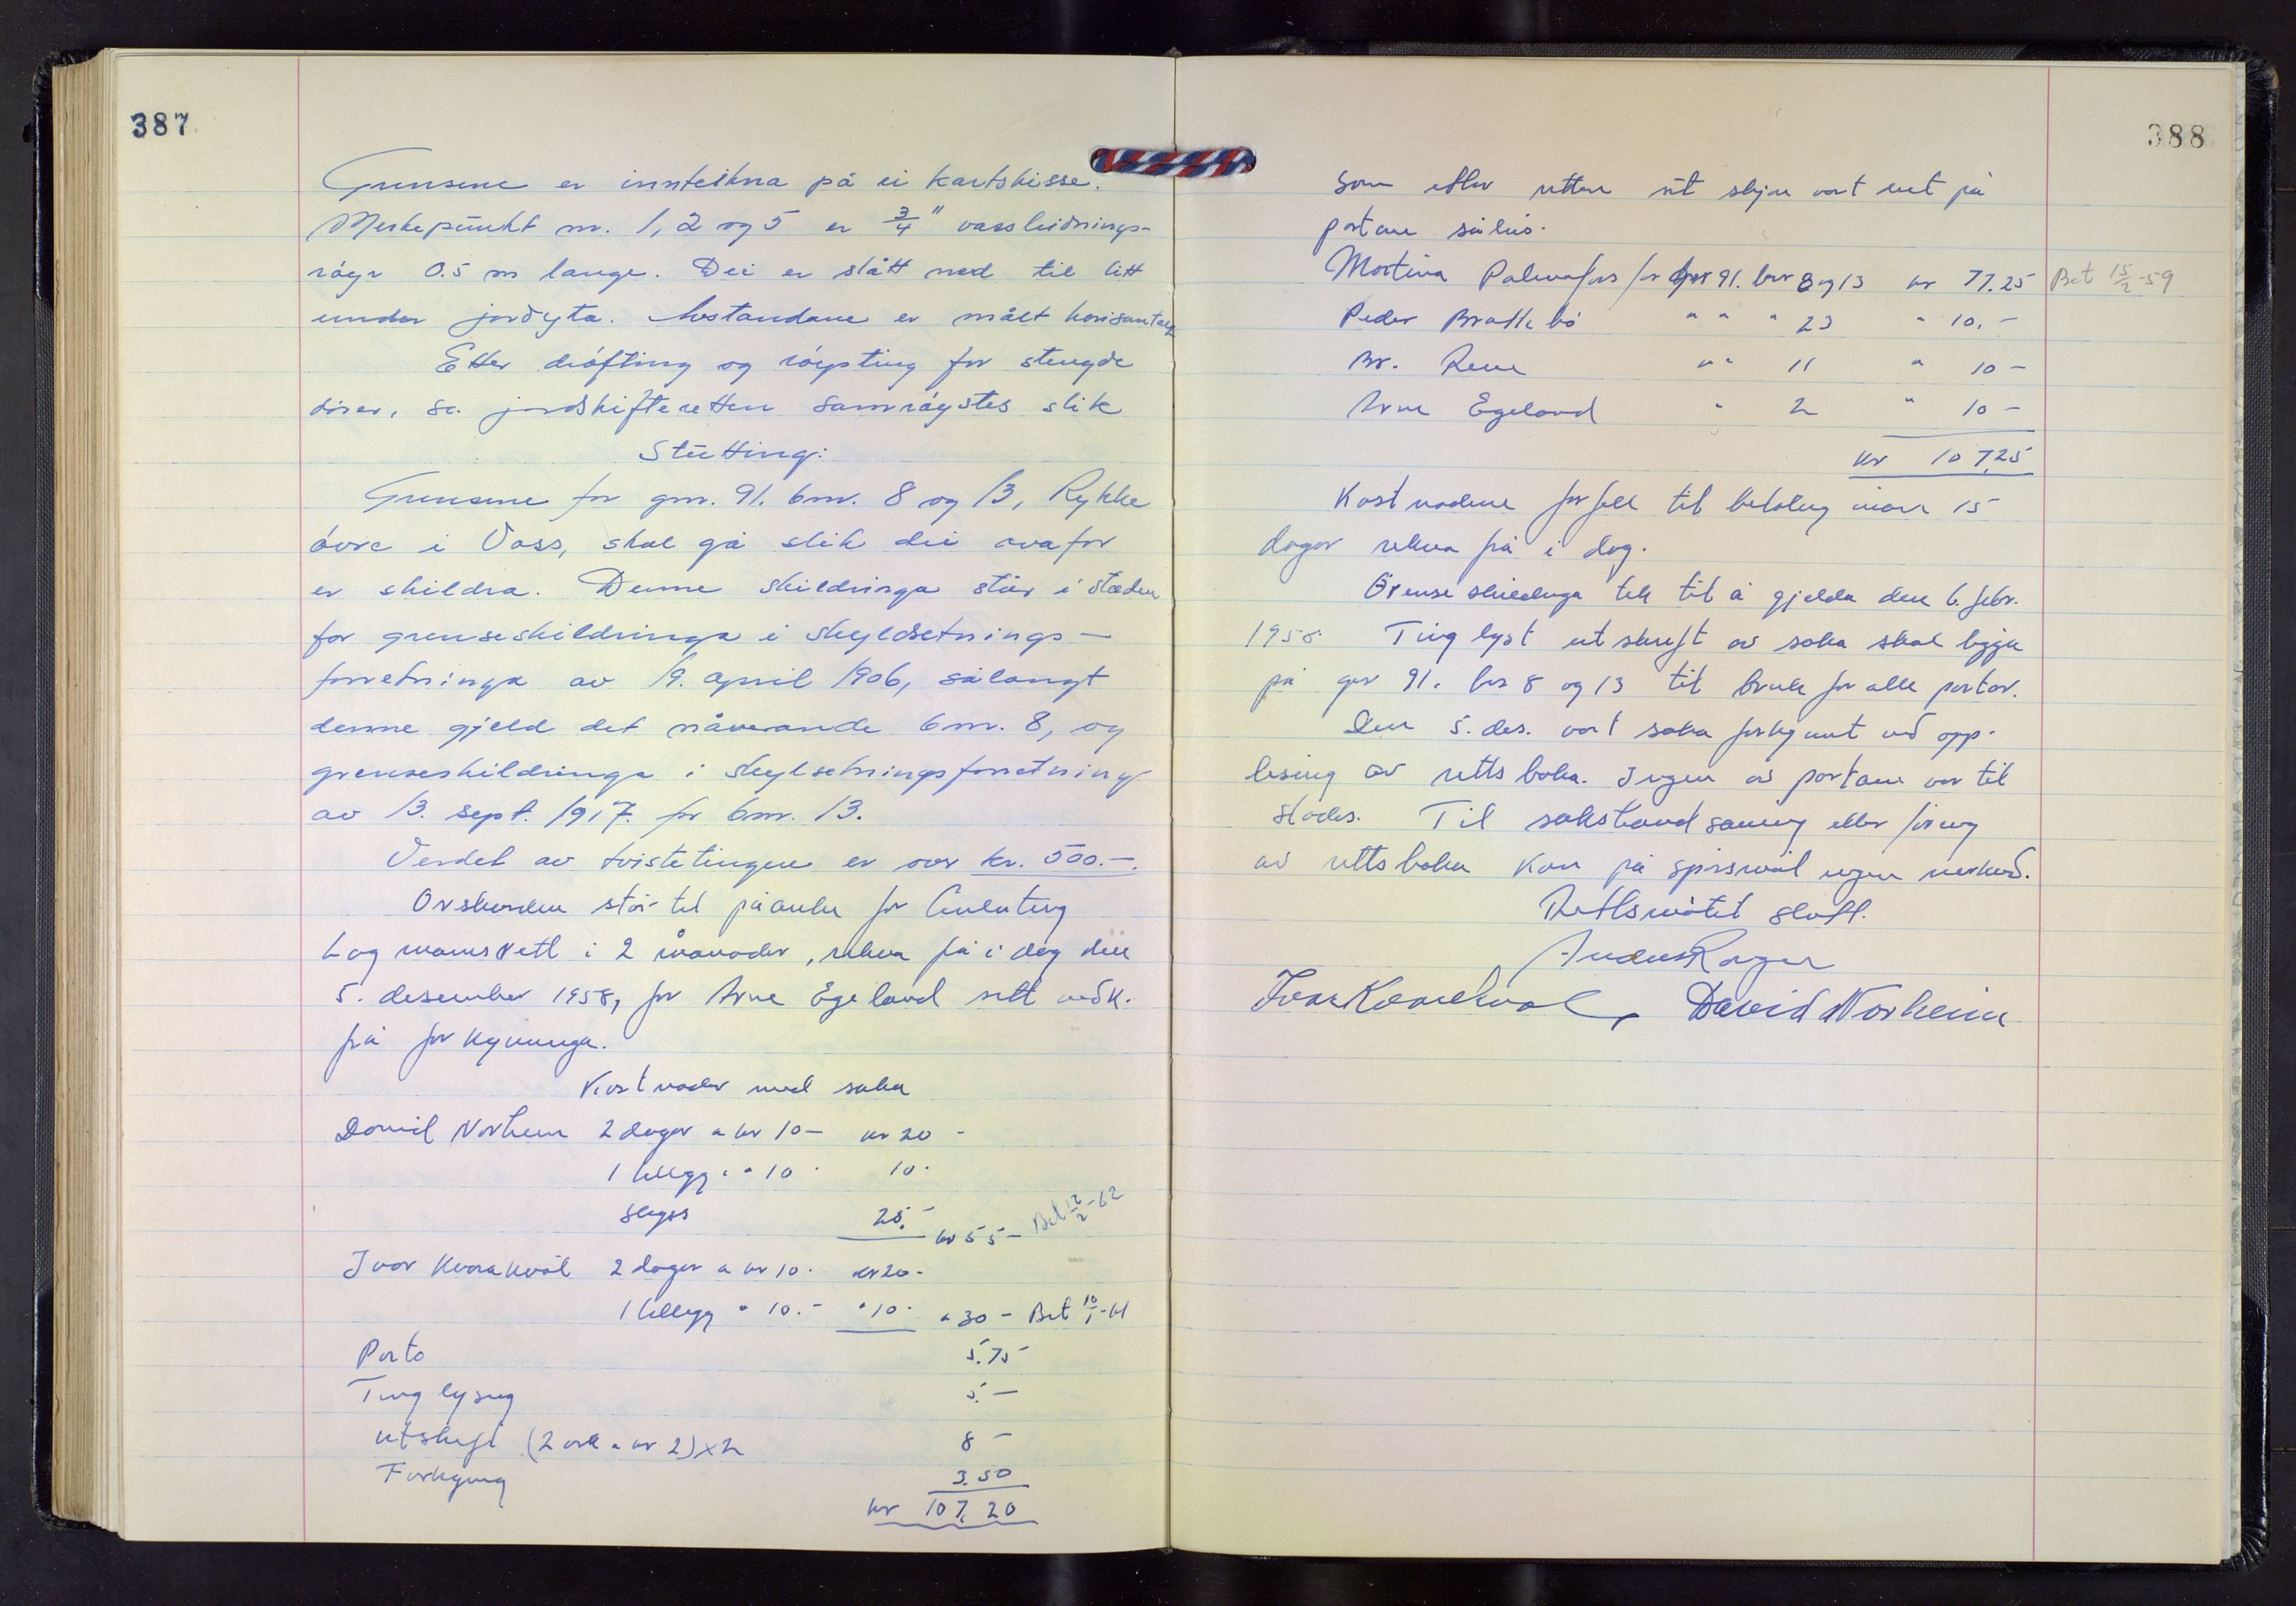 387
Grensene er innteikna på ei kartskisse.
Merkepunkt nr. 1, 2 og 5 er 3/4" vassleidnings-
røyr 0.5 m lange. Dei er slått ned til litt
under jordyta. Avstandane er målt horisontalt
Etter drøfting og røysting for stengde
dører, sa jordskifteretten samrøystes slik
Slutting:
Grensene for gnr. 91. bnr. 8 og 13, Rykke
øvre i Voss, skal gå slik dei ovafor
er skildra. Denne skildringa står i staden
for grenseskildringa i skyldsetnings-
forretninga av 19. april 1906, sålangt
denne gjeld det nåverande bnr. 8, og
grenseskildringa i skylsetningsforretning
av 13. sept. 1917. for bnr. 13.
Verdet av tvistetingen er over kr. 500.-.
Orskurden står til påanke for Gulating
Lagmannsrett i 2 månader, rekna frå i dag den
5. desember 1958, for Arne Egeland rett nedk.
frå forkynninga.
Kostnader med saka
David Norheim 2 dagar a kr 10- kr 20 -
1 tillegg " " 10 - 10.
Skyss 25.- kr 55- Bet 12/2-62
Ivar Kvarekvål 2 dagar a kr 10. kr 20-
1 tillegg " 10.- " 10. " 30 - Bet 10/1-61
Porto 5.75
Tinglysing 5.-
Utskrift (2 ark a kr 2)x2 8 -
Forkynning 3.50
kr 107,20
388
som etter retten sit skjøn vart lut på
partane såleis.
Martina Palmafoss for gnr 91. bnr 8 og 13 kr 77.25 Bet 15/2-59
Peder Brattebø " " " 23 " 10.-
Br. Rene " " 11 " 10 -
Arne Egeland " 2 " 10 -
kr 107,25
Kostnadene forfell til betaling innan 15
dagar rekna frå i dag.
Grenseskildringa tek til å gjelda den 6. febr.
1958. Tinglyst utskrift av saka skal liggja
på gnr 91. bnr 8 og 13 til bruk for alle partar.
Den 5. des. vart saka forkynnt ved opp-
lesing av rettsboka. Ingen av partane var til
stades. Til sakshandsaming eller føring
av rettsboka kom på spørsmål ingen merknad.
Rettsmøtet slutt.
Ivar Kvarekvål, David Norheim